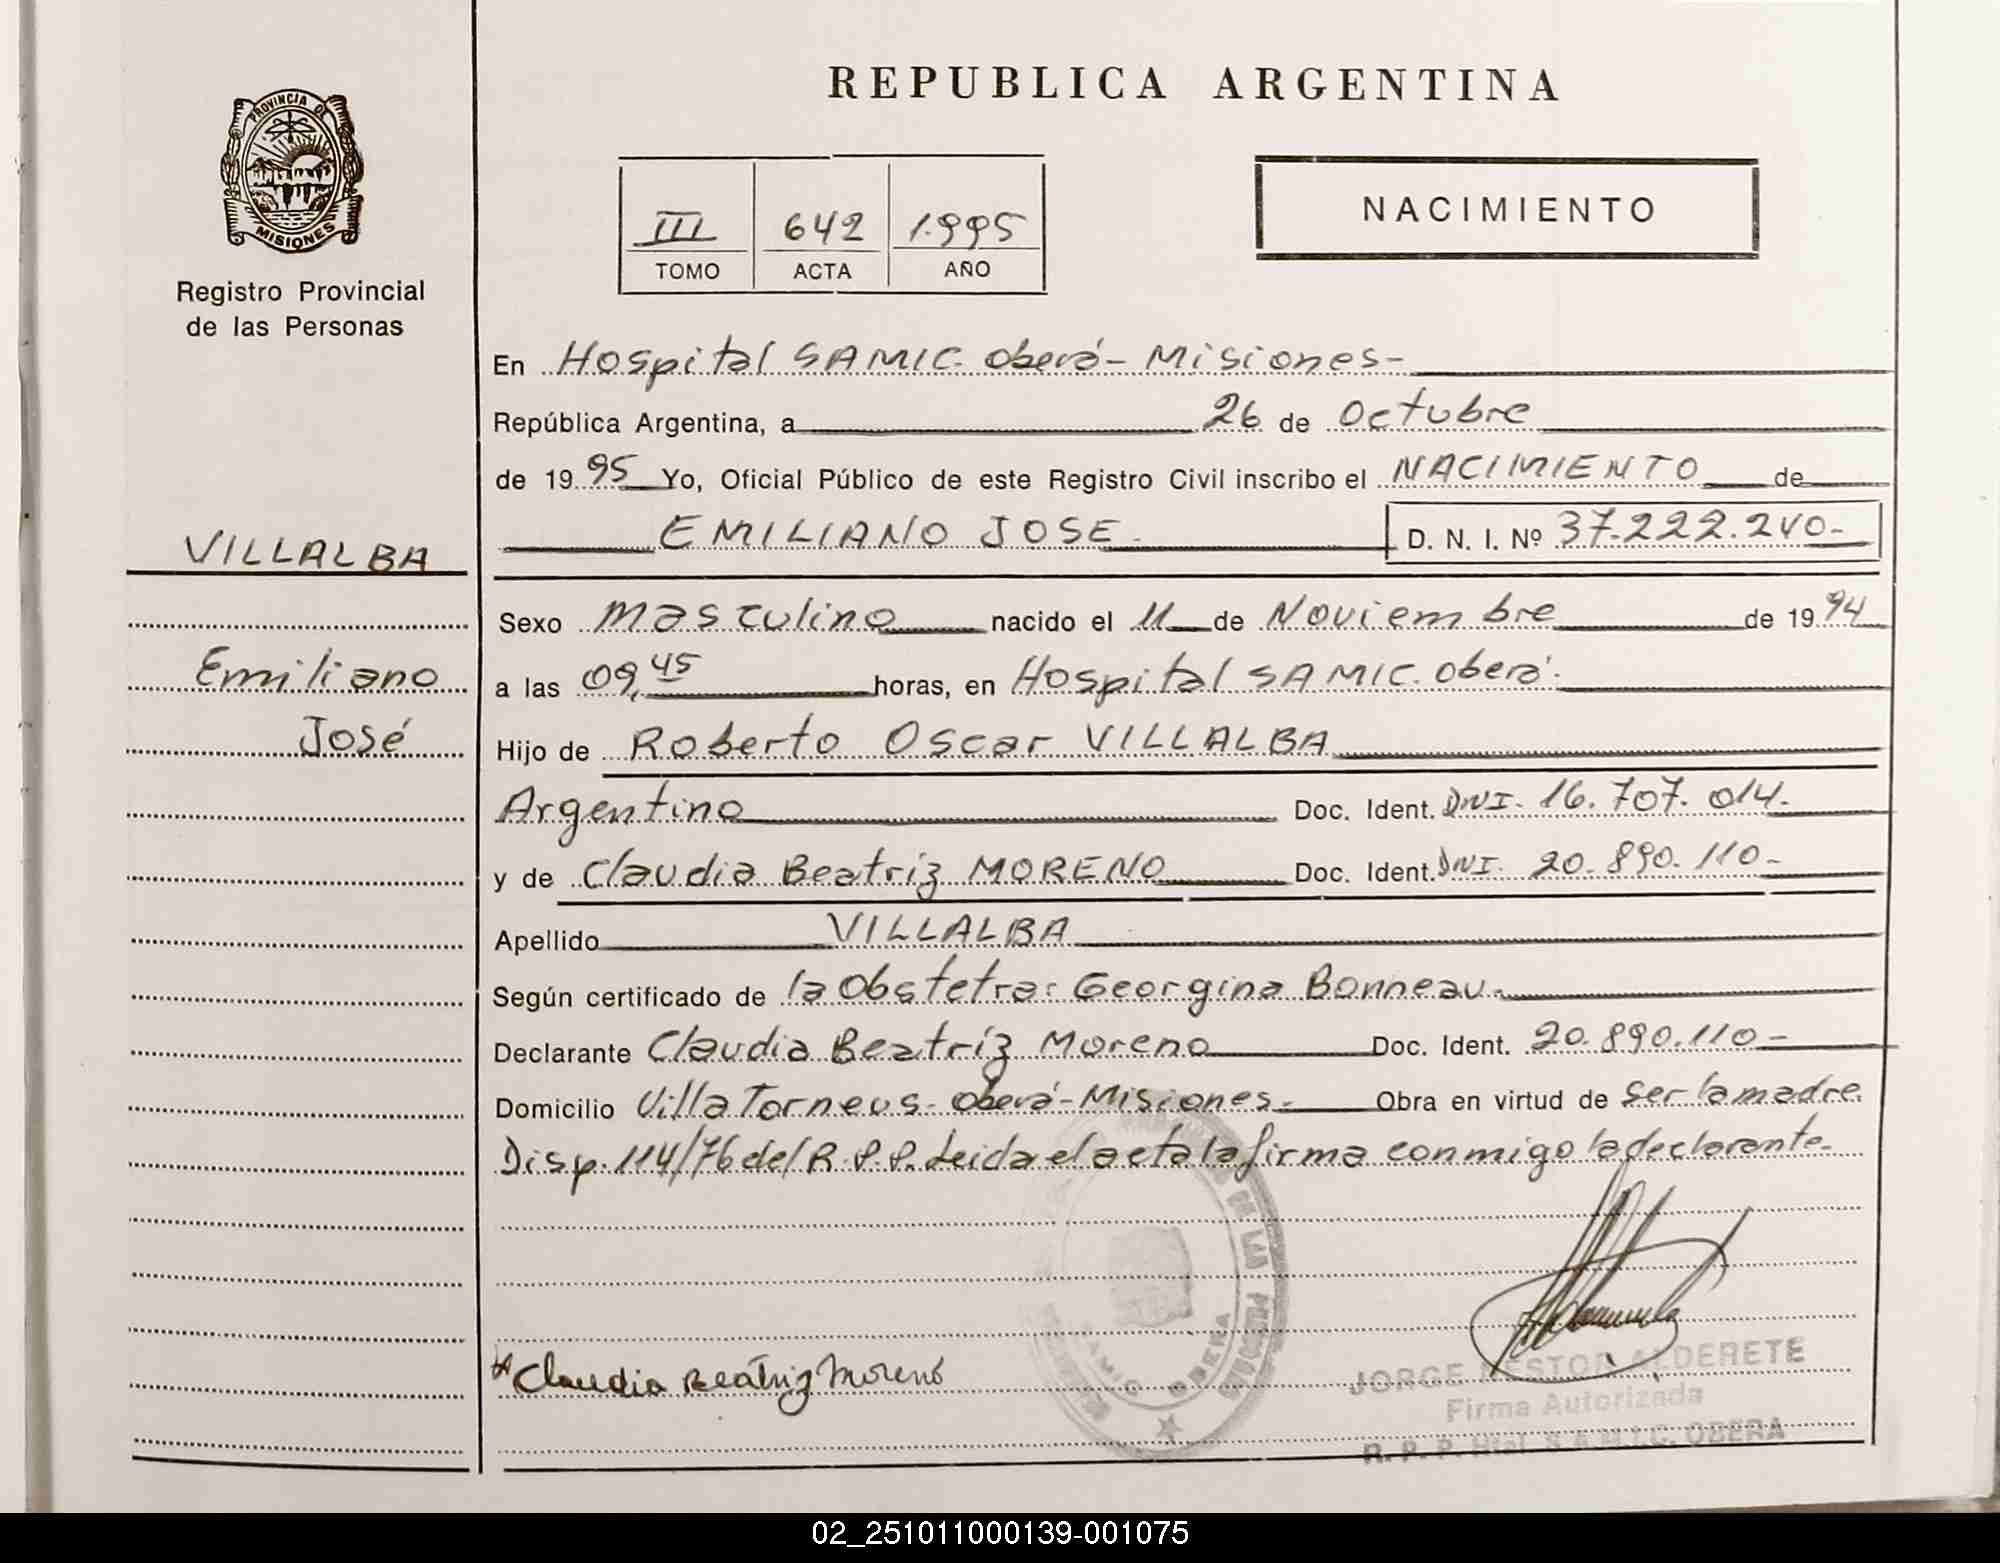 REPUBLICA ARGENTINA
PROVINCIA DE
MISIONES
Registro Provincial
de las Personas
III 642 1.995
TOMO ACTA AÑO
NACIMIENTO
En Hospital SAMIC. Oberá - Misiones -
República Argentina, a 26 de Octubre
de 19 95 Yo, Oficial Público de este Registro Civil inscribo el NACIMIENTO de
EMILIANO JOSE - D. N. I. Nº 37.222.240-
VILLALBA
Emiliano
José
Sexo Masculino nacido el 11 de Noviembre de 19 94
a las 09,45 horas, en Hospital SAMIC. Oberá.
Hijo de Roberto Oscar VILLALBA
Argentino Doc. Ident. DNI. 16.707.014.
y de Claudia Beatriz MORENO Doc. Ident. DNI. 20.890.110-
Apellido VILLALBA
Según certificado de la Obstetra: Georgina Bonneau.
Declarante Claudia Beatríz Moreno Doc. Ident. 20.890.110-
Domicilio Villa Torneus - Oberá - Misiones - Obra en virtud de ser la madre
Disp. 114/76 del R.P.P. Leida el acta la firma conmigo la declarante-
Claudia Beatriz Moreno
JORGE NESTOR ALDERETE
Firma Autorizada
R. P. P. Htal. S.A.M.I.C. OBERA
02_251011000139-001075